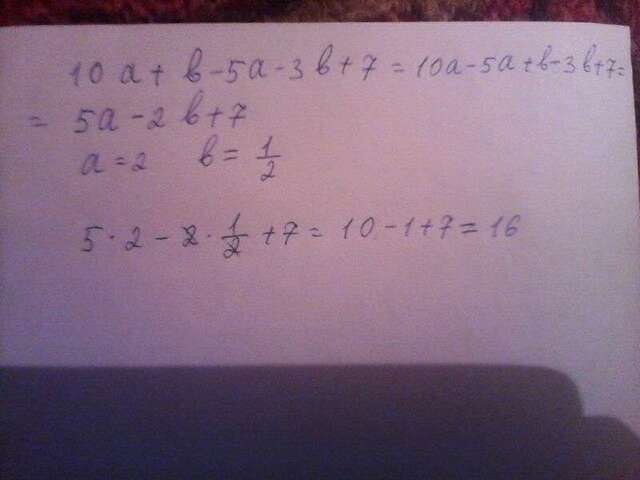 10a + b - 5a - 3b + 7 = 10a - 5a + b - 3b + 7 =
= 5a - 2b + 7
a = 2 b = 1/2
5 · 2 - 2 · 1/2 + 7 = 10 - 1 + 7 = 16